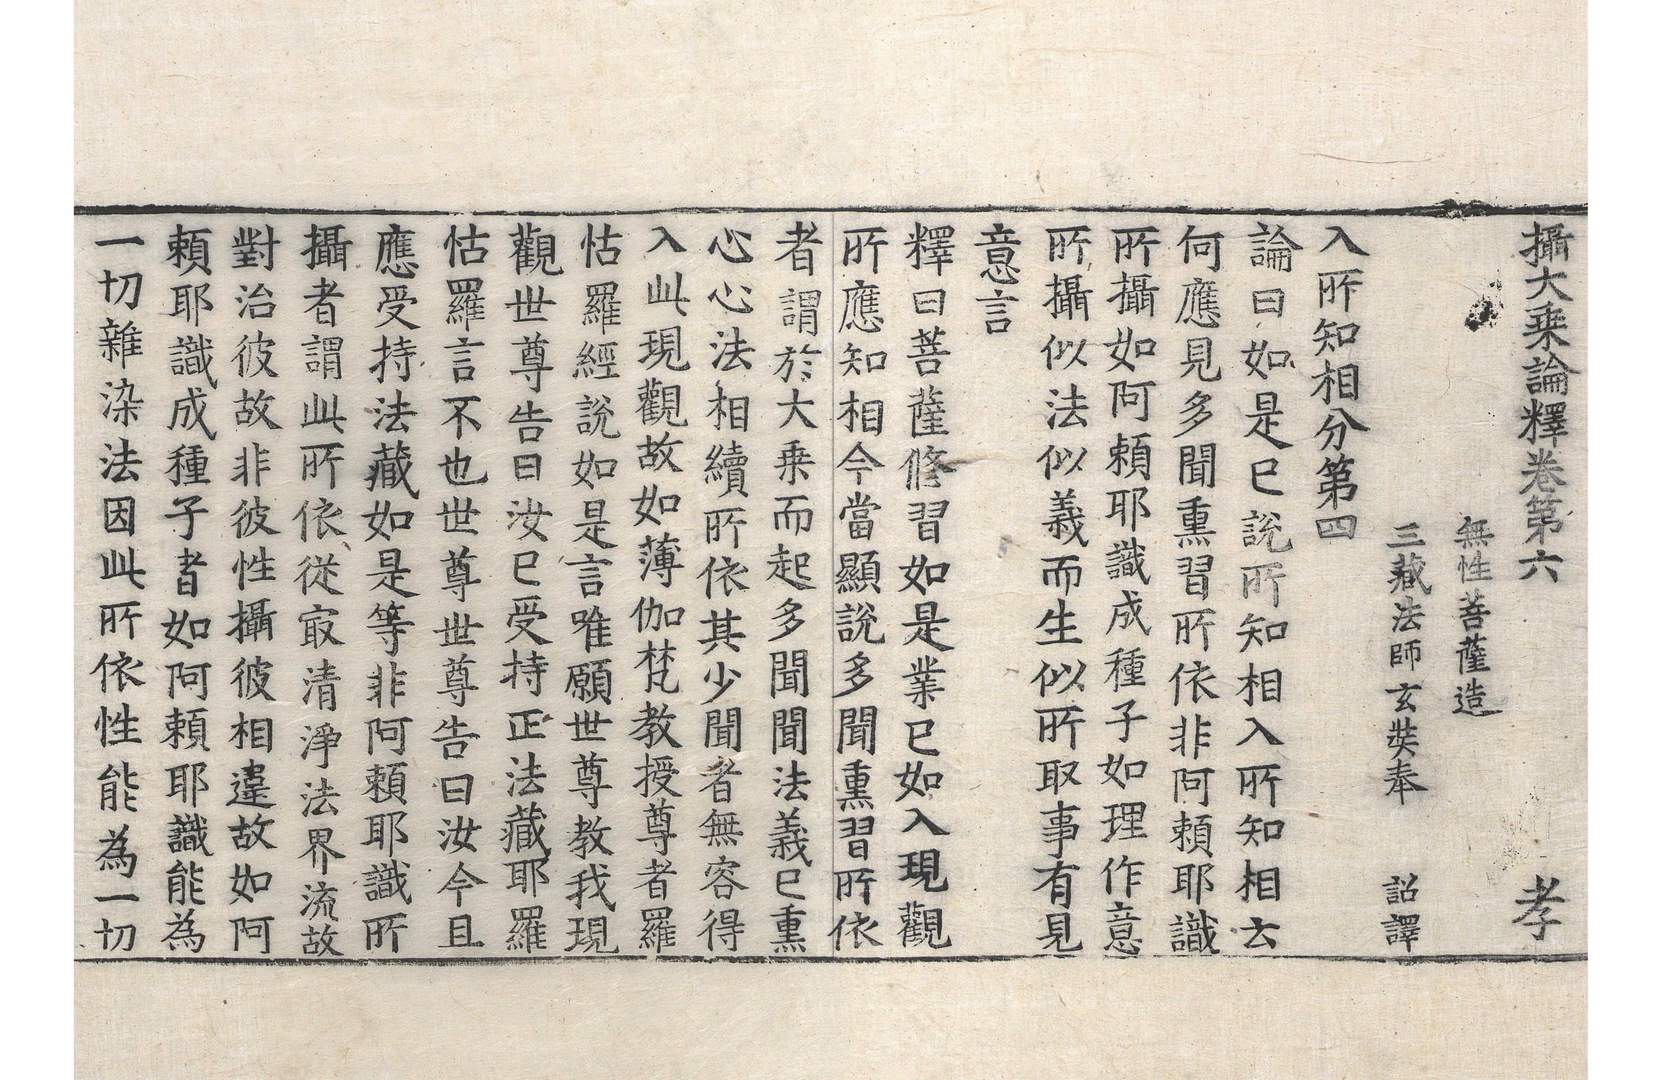 攝大乗論釋卷第六 孝
無性菩薩造
三藏法師玄奘奉 詔譯
入所知相分第四
論曰如是已說所知相入所知相云
何應見多聞熏習所依非阿賴耶識
所攝如阿賴耶識成種子如理作意
所攝似法似義而生似所取事有見
意言
釋曰菩薩修習如是業已如入現觀
所應知相今當顯說多聞熏習所依
者謂於大乗而起多聞聞法義已熏
心心法相續所依其少聞者無容得
入此現觀故如薄伽梵教授尊者羅
怙羅經說如是言唯願世尊教我現
觀世尊告曰汝已受持正法藏耶羅
怙羅言不也世尊世尊告曰汝今且
應受持法藏如是等非阿賴耶識所
攝者謂此所依從㝡清淨法界流故
對治彼故非彼性攝彼相違故如阿
賴耶識成種子者如阿賴耶識能為
一切雜染法因此所依性能為一切